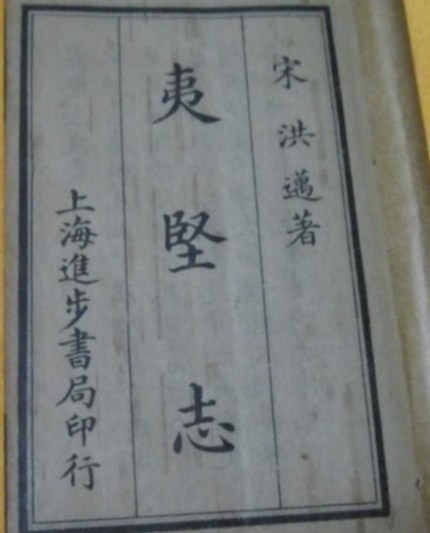 宋洪邁著
夷堅志
上海進步書局印行